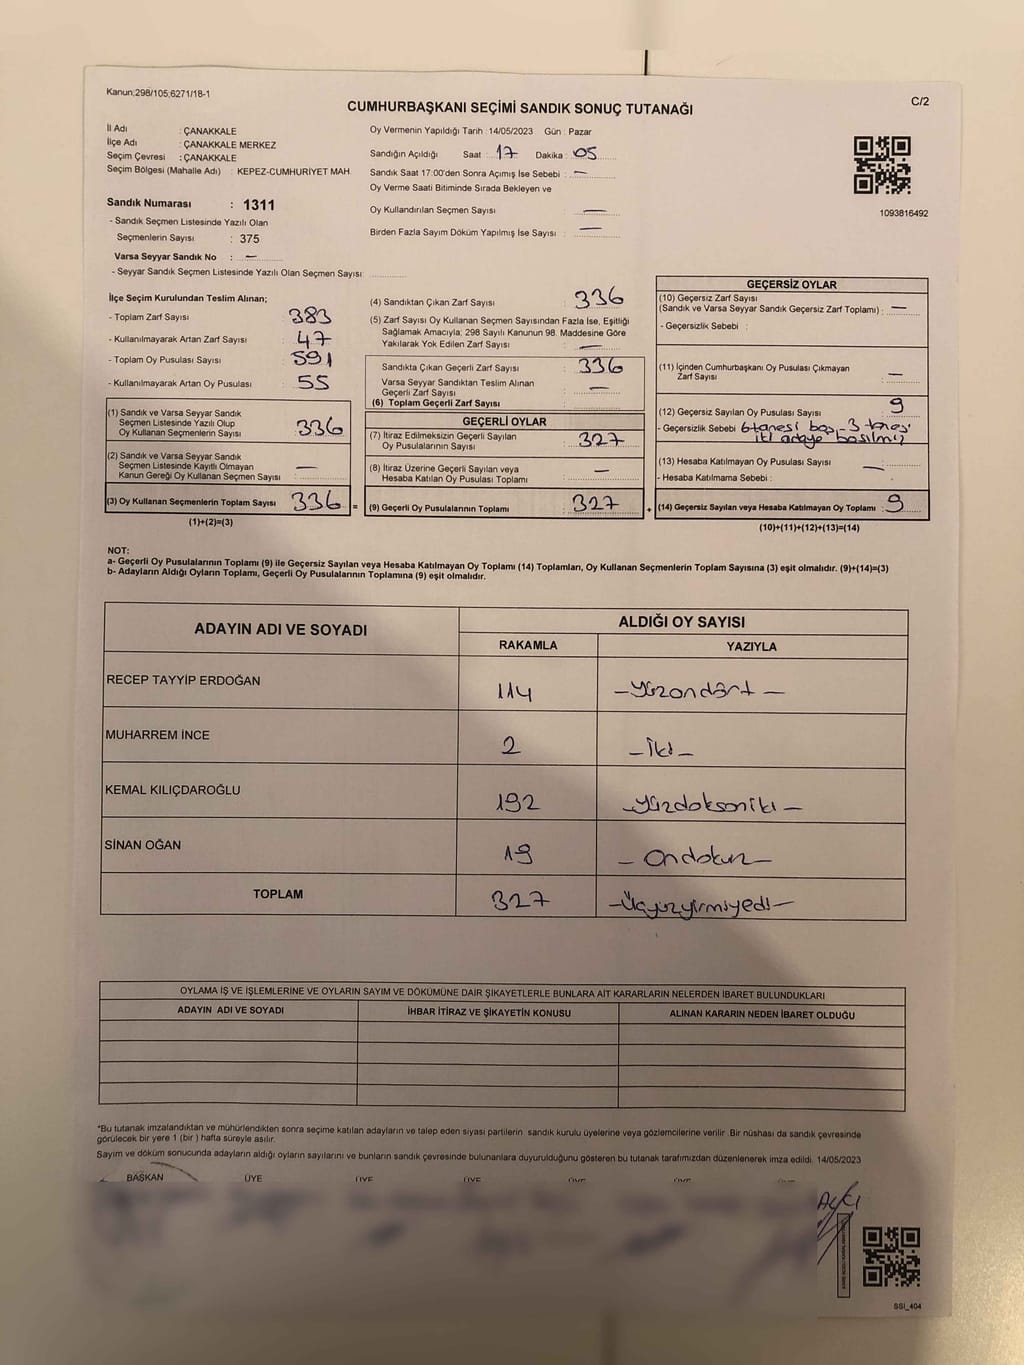 Kanun;298/105;6271/18-1
C/2
CUMHURBAŞKANI SEÇİMİ SANDIK SONUÇ TUTANAĞI
İl Adı : ÇANAKKALE
İlçe Adı : ÇANAKKALE MERKEZ
Seçim Çevresi : ÇANAKKALE
Seçim Bölgesi (Mahalle Adı) : KEPEZ-CUMHURİYET MAH
Sandık Numarası : 1311
- Sandık Seçmen Listesinde Yazılı Olan
Seçmenlerin Sayısı : 375
Varsa Seyyar Sandık No : —
- Seyyar Sandık Seçmen Listesinde Yazılı Olan Seçmen Sayısı:
Oy Vermenin Yapıldığı Tarih : 14/05/2023 Gün : Pazar
Sandığın Açıldığı Saat : 17 Dakika : 05
Sandık Saat 17:00'den Sonra Açımış İse Sebebi : —
Oy Verme Saati Bitiminde Sırada Bekleyen ve
Oy Kullandırılan Seçmen Sayısı : —
Birden Fazla Sayım Döküm Yapılmış İse Sayısı : —
1093816492
İlçe Seçim Kurulundan Teslim Alınan;
- Toplam Zarf Sayısı : 383
- Kullanılmayarak Artan Zarf Sayısı : 47
- Toplam Oy Pusulası Sayısı : 591
- Kullanılmayarak Artan Oy Pusulası : 55
(1) Sandık ve Varsa Seyyar Sandık
Seçmen Listesinde Yazılı Olup
Oy Kullanan Seçmenlerin Sayısı : 336
(2) Sandık ve Varsa Seyyar Sandık
Seçmen Listesinde Kayıtlı Olmayan
Kanun Gereği Oy Kullanan Seçmen Sayısı : —
(3) Oy Kullanan Seçmenlerin Toplam Sayısı : 336
(1)+(2)=(3)
(4) Sandıktan Çıkan Zarf Sayısı : 336
(5) Zarf Sayısı Oy Kullanan Seçmen Sayısından Fazla İse, Eşitliği
Sağlamak Amacıyla; 298 Sayılı Kanunun 98. Maddesine Göre
Yakılarak Yok Edilen Zarf Sayısı : —
Sandıkta Çıkan Geçerli Zarf Sayısı : 336
Varsa Seyyar Sandıktan Teslim Alınan
Geçerli Zarf Sayısı : —
(6) Toplam Geçerli Zarf Sayısı :
GEÇERLİ OYLAR
(7) İtiraz Edilmeksizin Geçerli Sayılan
Oy Pusulalarının Sayısı : 327
(8) İtiraz Üzerine Geçerli Sayılan veya
Hesaba Katılan Oy Pusulası Toplamı : —
= (9) Geçerli Oy Pusulalarının Toplamı : 327
GEÇERSİZ OYLAR
(10) Geçersiz Zarf Sayısı
(Sandık ve Varsa Seyyar Sandık Geçersiz Zarf Toplamı) : —
- Geçersizlik Sebebi :
(11) İçinden Cumhurbaşkanı Oy Pusulası Çıkmayan
Zarf Sayısı : —
(12) Geçersiz Sayılan Oy Pusulası Sayısı : 9
- Geçersizlik Sebebi 6 tanesi boş - 3 tanesi
iki adaya basılmış
(13) Hesaba Katılmayan Oy Pusulası Sayısı : —
- Hesaba Katılmama Sebebi :
+ (14) Geçersiz Sayılan veya Hesaba Katılmayan Oy Toplamı : 9
(10)+(11)+(12)+(13)=(14)
NOT:
a- Geçerli Oy Pusulalarının Toplamı (9) ile Geçersiz Sayılan veya Hesaba Katılmayan Oy Toplamı (14) Toplamları, Oy Kullanan Seçmenlerin Toplam Sayısına (3) eşit olmalıdır. (9)+(14)=(3)
b- Adayların Aldığı Oyların Toplamı, Geçerli Oy Pusulalarının Toplamına (9) eşit olmalıdır.
ADAYIN ADI VE SOYADI ALDIĞI OY SAYISI
RAKAMLA YAZIYLA
RECEP TAYYİP ERDOĞAN 114 —Yüzondört—
MUHARREM İNCE 2 —İki—
KEMAL KILIÇDAROĞLU 192 —Yüzdoksaniki—
SİNAN OĞAN 19 —Ondokuz—
TOPLAM 327 —Üçyüzyirmiyedi—
OYLAMA İŞ VE İŞLEMLERİNE VE OYLARIN SAYIM VE DÖKÜMÜNE DAİR ŞİKAYETLERLE BUNLARA AİT KARARLARIN NELERDEN İBARET BULUNDUKLARI
ADAYIN ADI VE SOYADI İHBAR İTİRAZ VE ŞİKAYETİN KONUSU ALINAN KARARIN NEDEN İBARET OLDUĞU
"Bu tutanak imzalandıktan ve mühürlendikten sonra seçime katılan adayların ve talep eden siyasi partilerin sandık kurulu üyelerine veya gözlemcilerine verilir. Bir nüshası da sandık çevresinde
görülecek bir yere 1 (bir ) hafta süreyle asılır.
Sayım ve döküm sonucunda adayların aldığı oyların sayılarını ve bunların sandık çevresinde bulunanlara duyurulduğunu gösteren bu tutanak tarafımızdan düzenlenerek imza edildi. 14/05/2023
BAŞKAN ÜYE ÜYE ÜYE ÜYE ÜYE ÜYE
SSI_404